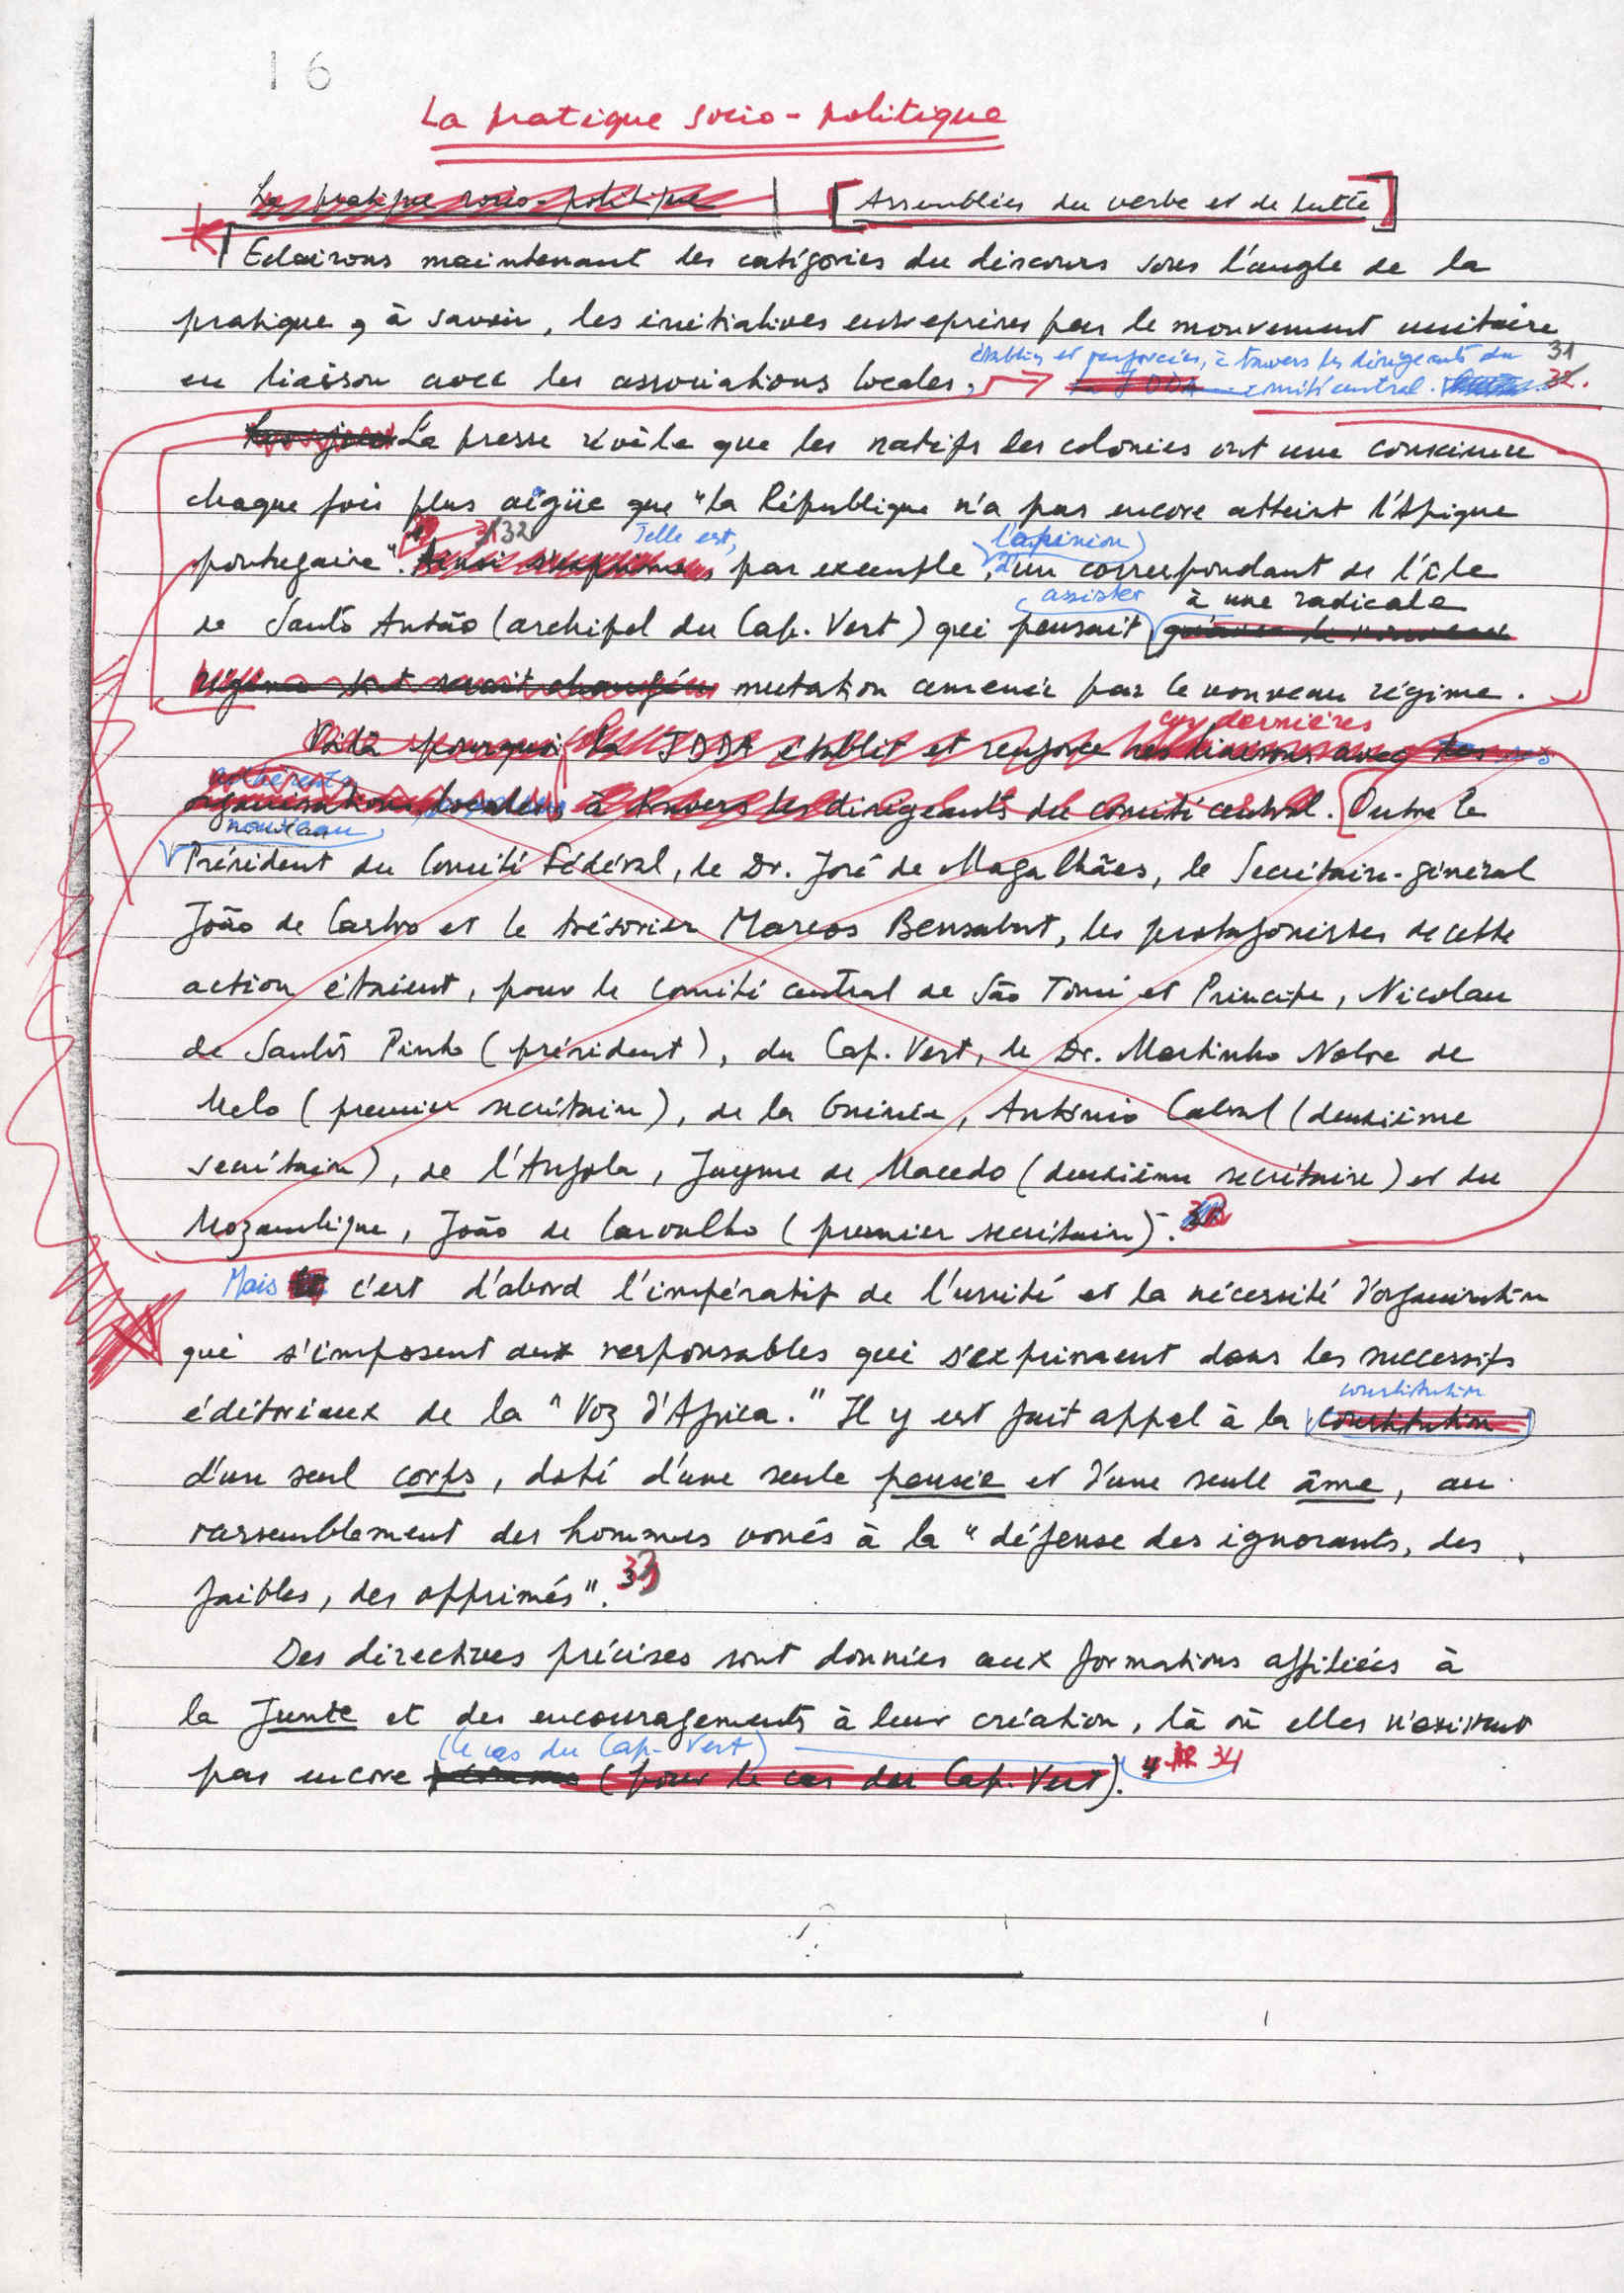 16
La pratique socio-politique
La pratique socio-politique [Assemblées du verbe et de lutte]
Eclairons maintenant les catégories du discours sous l'angle de la
pratique, à savoir, les initiatives entreprises par le mouvement unitaire
établies et renforcées, à travers les dirigeants du 31
en liaison avec les associations locales, la JDDA comité central. 32.
La presse révèle que les natifs des colonies ont une conscience
chaque fois plus aigüe que "la République n'a pas encore atteint l'Afrique
32 Telle est, l'opinion
portugaise". Ainsi s'exprime, par exemple, d'un correspondant de l'île
assister à une radicale
de Santo Antão (archipel du Cap. Vert) qui pensait qu'avec le nouveau
régime tout serait changé mutation amenée par le nouveau régime.
ces dernières
Voilà pourquoi la JDDA établit et renforce ses liaisons avec les ses
adhérents
organisations locales, à travers les dirigeants du comité central. Outre le
nouveau
Président du Comité Fédéral, le Dr. José de Magalhães, le Secrétaire-général
João de Castro et le trésorier Marcos Bensabat, les protagonistes de cette
action étaient, pour le comité central de São Tomé et Principe, Nicolau
de Santos Pinto (président), du Cap. Vert, le Dr. Martinho Nobre de
Melo (premier secrétaire), de la Guinée, António Cabral (deuxième
secrétaire), de l'Angola, Jayme de Macedo (deuxième secrétaire) et du
Mozambique, João de Carvalho (premier secrétaire).
Mais c'est d'abord l'impératif de l'unité et la nécessité d'organisation
qui s'imposent aux responsables qui s'expriment dans les successifs
constitution
éditoriaux de la "Voz d'Africa." Il y est fait appel à la constitution
d'un seul corps, doté d'une seule pensée et d'une seule âme, au
rassemblement des hommes voués à la "défense des ignorants, des
faibles, des opprimés". 33
Des directives précises sont données aux formations affiliées à
la Junte et des encouragements à leur création, là où elles n'existent
(le cas du Cap-Vert)
pas encore comme (pour le cas du Cap. Vert). 34